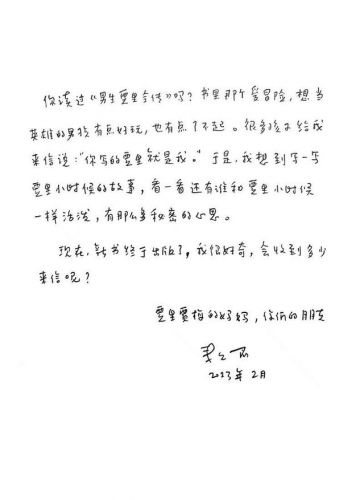 你读过《男生贾里全传》吗？书里那个爱冒险，想当
英雄的男孩有点好玩，也有点了不起。很多孩子给我
来信说：“你写的贾里就是我。”于是，我想到写一写
贾里小时候的故事，看一看还有谁和贾里小时候
一样活泼，有那么多秘密的心思。
现在，新书终于出版了，我很好奇，会收到多少
来信呢？
贾里贾梅的妈妈，你们的朋友
秦文君
2023年2月